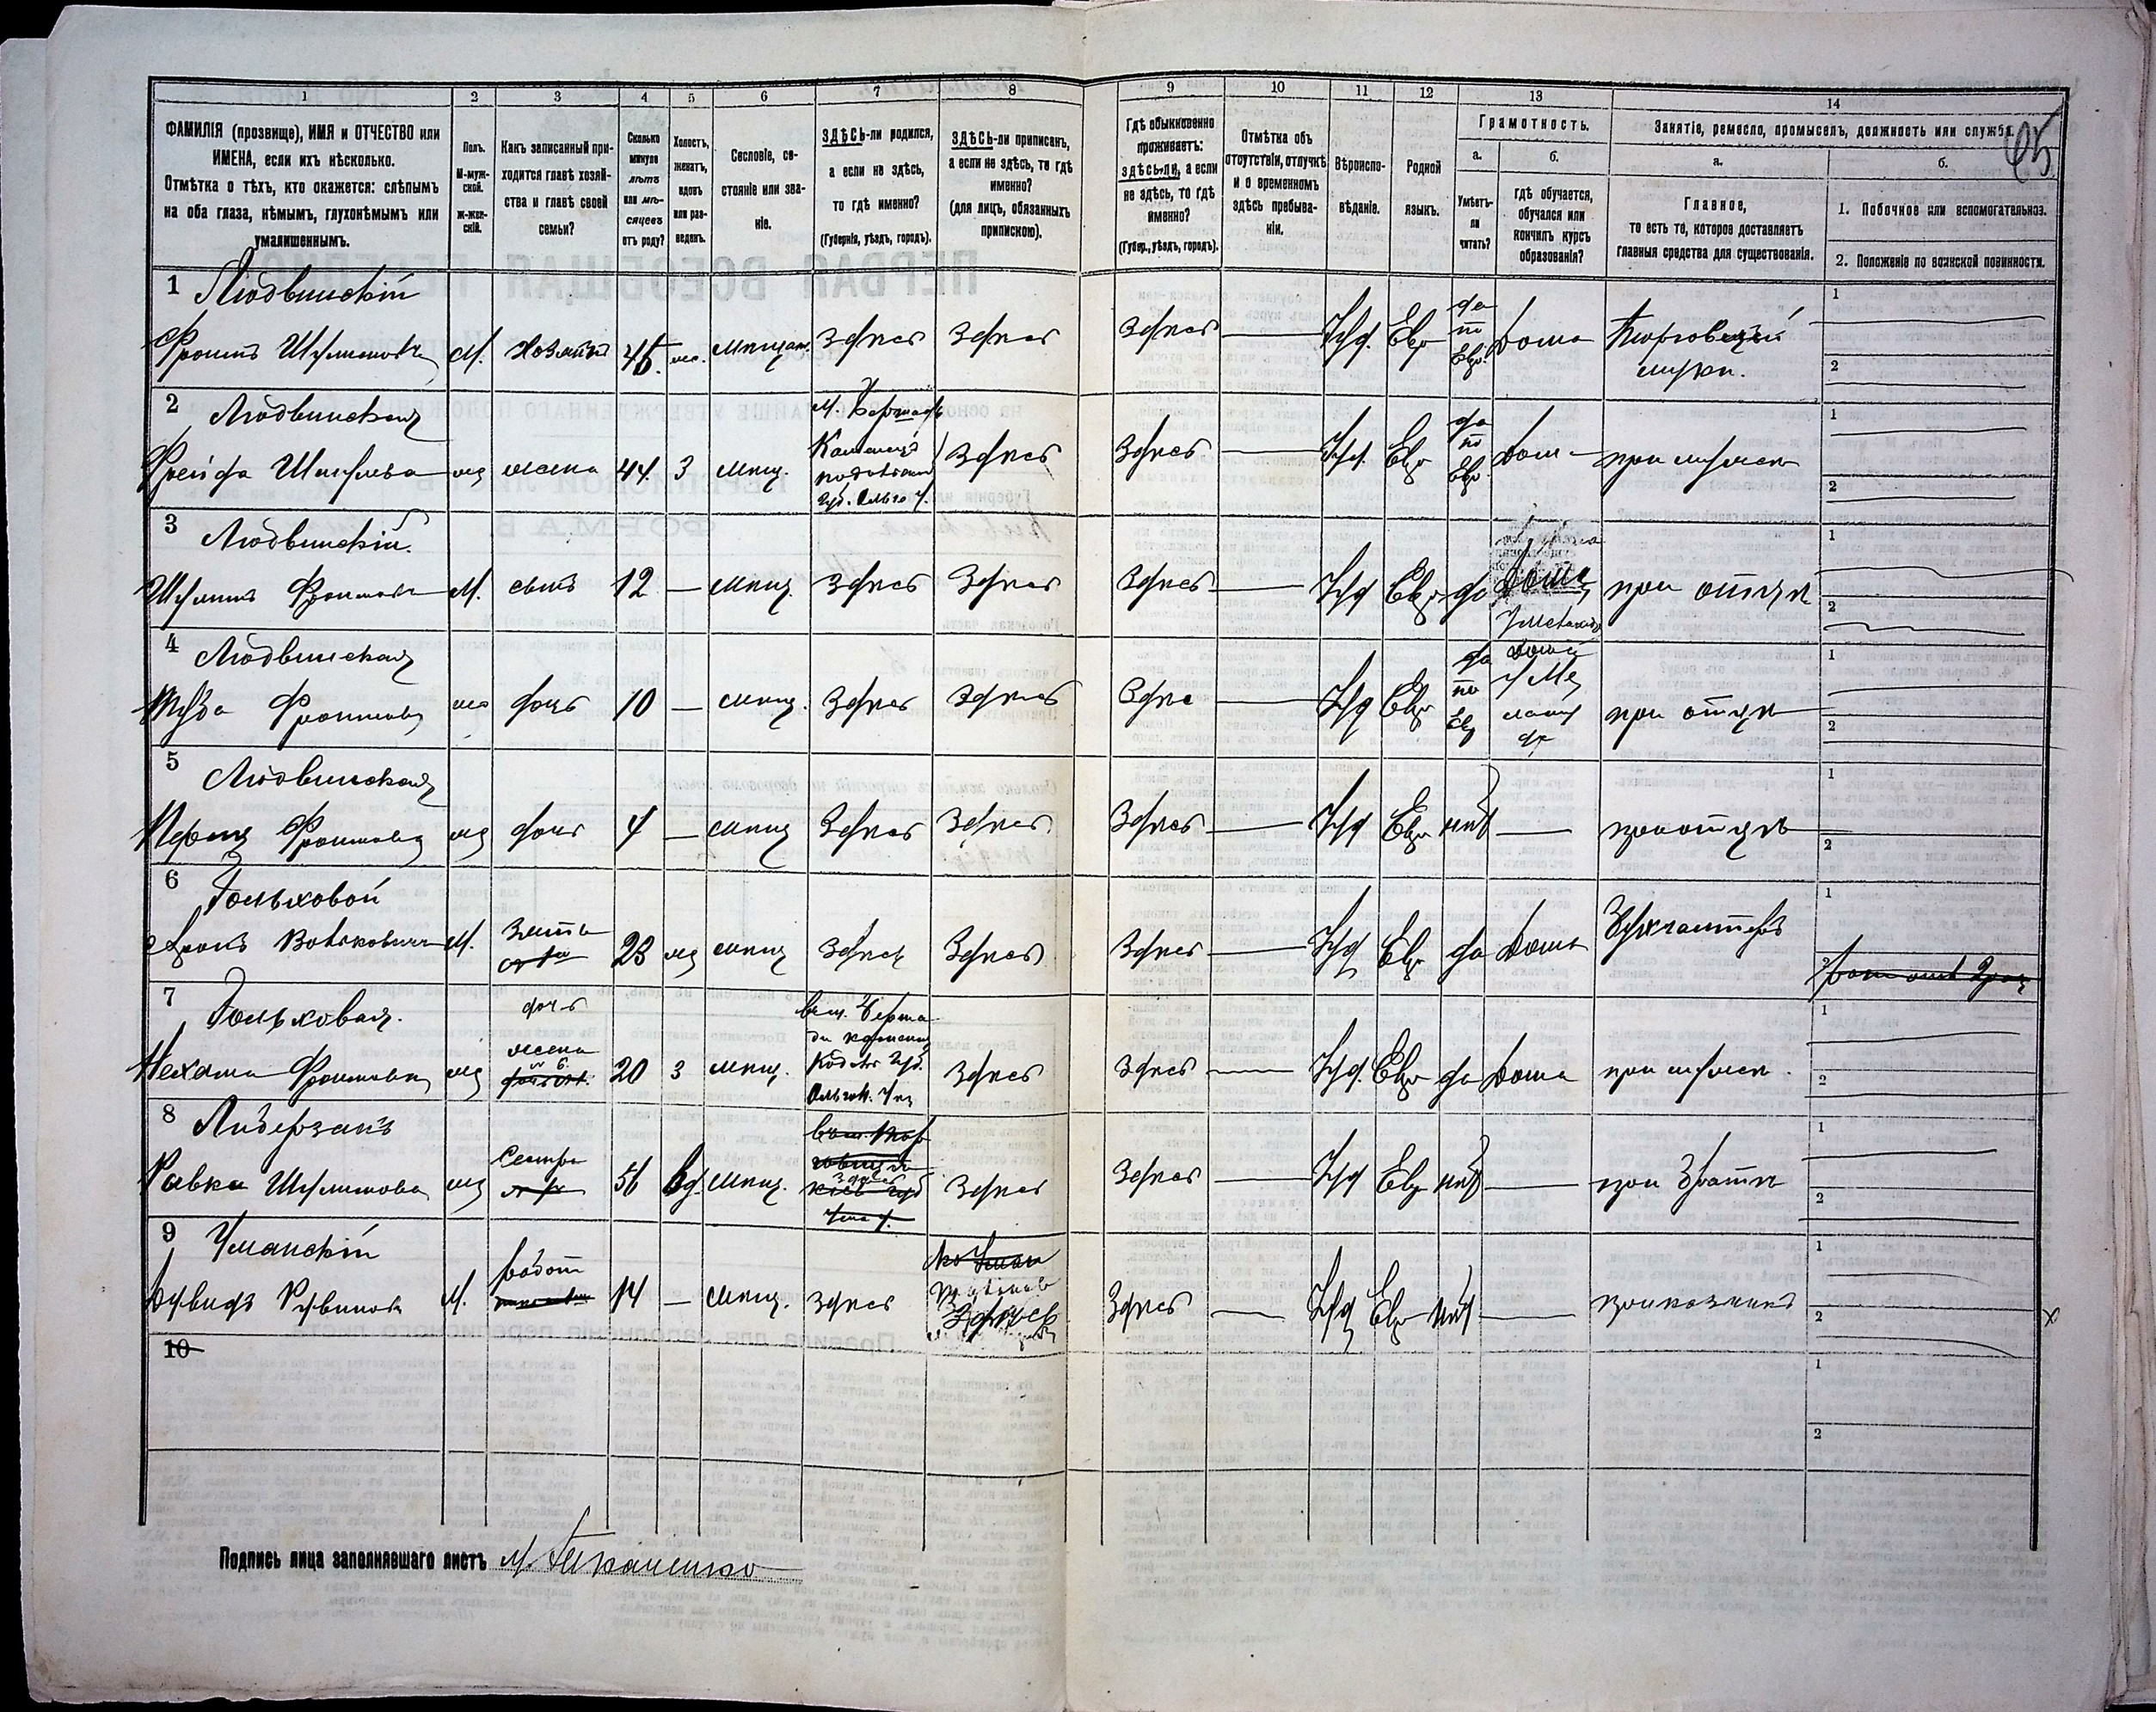 1
2
3
4
5
6
7
8
9
10
11
12
13
14
ФАМИЛІЯ (прозвище), ИМЯ и ОТЧЕСТВО или
ИМЕНА, если ихъ нѣсколько.
Отмѣтка о тѣхъ, кто окажется: слѣпымъ
на оба глаза, нѣмымъ, глухонѣмымъ или
умалишеннымъ.
Полъ.
М-муж-
ской.
Ж-жен-
скій.
Какъ записанный при-
ходится главѣ хозяй-
ства и главѣ своей
семьи?
Сколько
минуло
лѣтъ
или мѣ-
сяцевъ
отъ роду?
Холостъ,
женатъ,
вдовъ
или раз-
веденъ.
Сословіе, со-
стояніе или зва-
ніе.
ЗДѢСЬ-ли родился,
а если не здѣсь,
то гдѣ именно?
(Губернія, уѣздъ, городъ).
ЗДѢСЬ-ли приписанъ,
а если не здѣсь, то гдѣ
именно?
(для лицъ, обязанныхъ
припискою).
Гдѣ обыкновенно
проживаетъ:
здѣсь-ли, а если
не здѣсь, то гдѣ
именно?
(Губер., уѣздъ, городъ).
Отмѣтка объ
отсутствіи, отлучкѣ
и о временномъ
здѣсь пребыва-
ніи.
Вѣроиспо-
вѣданіе.
Родной
языкъ.
Грамотность.
а.
Умѣетъ-
ли
читать?
б.
Гдѣ обучается,
обучался или
кончилъ курсъ
образованія?
Занятіе, ремесло, промыселъ, должность или служба.
65
а.
Главное,
то есть то, которое доставляетъ
главныя средства для существованія.
б.
1. Побочное или вспомогательное.
2. Положеніе по воинской повинности.
1 Людвинскій
Фроимъ Шулимовъ М. Хозяинъ 45 же. Мѣщан. Здѣсь Здѣсь Здѣсь Іуд. Евр да по Евр. дома Торговецъ муки.
2 Людвинская
Фрейда Шмулева жена 44 З мѣщ. м. Бершадь Каменецъ подольской губ. Ольго у. Здѣсь Здѣсь Іуд. Евр да по Евр. дома при мужѣ
3 Людвинскій.
Шулимъ Фроимовъ М. сынъ 12 — мѣщ. Здѣсь Здѣсь Здѣсь Іуд Евр да дома у меламеда при отцѣ
4 Людвинская
Фроимова дочь 10 — мѣщ. Здѣсь Здѣсь Здѣсь Іуд Евр да по Евр дома у меламеда при отцѣ
5 Людвинская
Фроимова дочь 4 — мѣщ Здѣсь Здѣсь Здѣсь Іуд Евр нѣт — при отцѣ
6 Гольховой
Аронъ Волковичъ М. зять 23 же мѣщ Здѣсь Здѣсь Здѣсь Іуд Евр да дома Бухгалтеръ
7 Гольховая.
Нехама Фроимова дочь жена № 6. 20 З мѣщ. въ м. Берша- ди каменец Подол. губ. Ольгоп. уѣз Здѣсь Здѣсь Іуд. Евр да дома при мужѣ.
8 Лидерзакъ
Ривка Шулимова Сестра 56 вд. мѣщ. Здѣсь Здѣсь Здѣсь Іуд Евр нѣт — при братѣ
9 Уманскій
Рувинов М. работ 14 — мѣщ. Здѣсь Здѣсь Здѣсь Іуд Евр нѣт — приказчикъ
10
Подпись лица заполнявшаго листъ М. Ткаченко